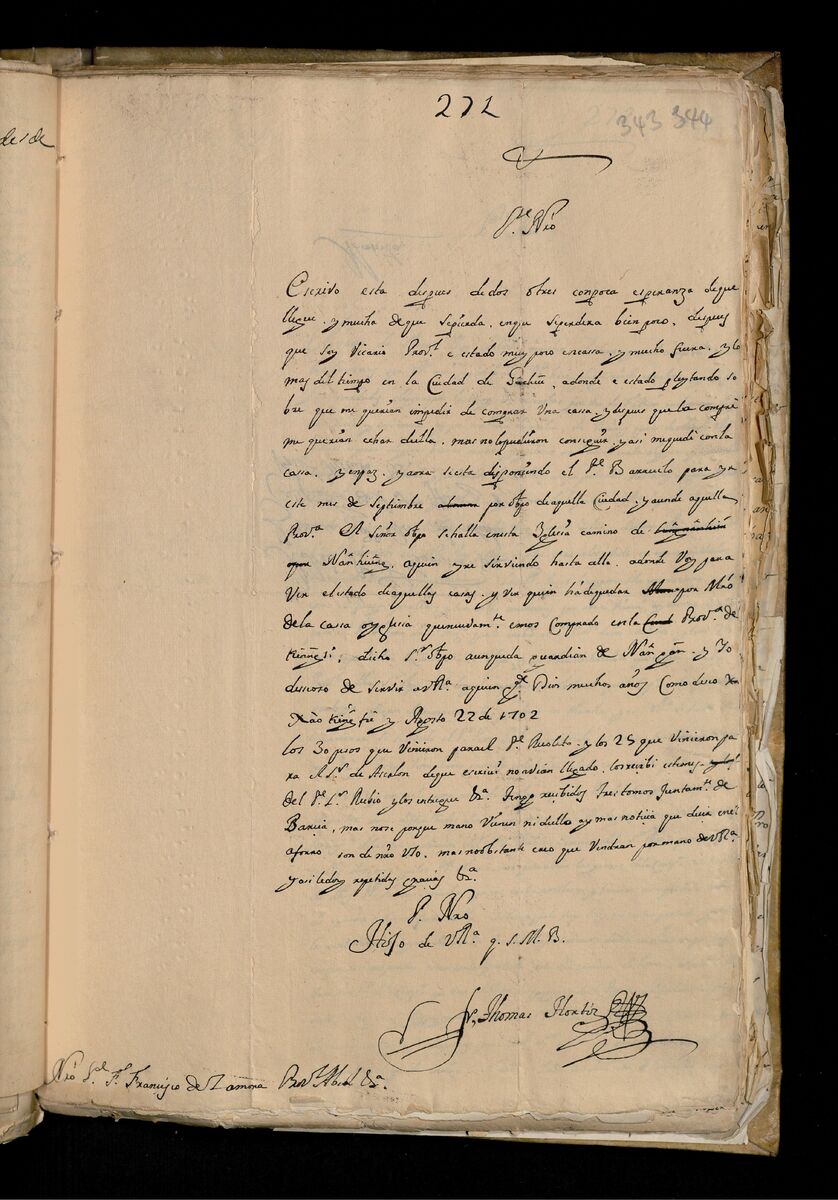 de 1 de
272
343 344
P.e Nro
Escrivo esta despues de dos o tres con poca esperanza de que
llegue, y mucha de que se pierda, en que se perdera bien poco, despues
que soy Vicario Prov.l e estado muy poco en cassa, y mucho fuera, y lo
mas del tiempo en la Ciudad de adonde e estado pleyteando so
bre que me querian impedir de comprar una cassa, y despues que la compré
me querian echar della, mas no lo pudieron conseguir, y asi me quedé con la
cassa, y en paz, y aora se esta disponiendo el P.e Barruelo para yr
este mes de Septiembre por obpo de aquella Ciudad, y aun de aquella
Prov.a El Señor obpo se halla en esta Iglesia camino de
aquien yre sirviendo hasta alla, adonde voy para
ver el estado de aquellas casas, y ver quien ha de quedar por Mro
de la cassa o yglesia que nuevam.te emos comprado en la Prov.a de
dicho S.r obpo aun queda guardian de y yo
deseoso de servir a v R.a aquien g.e Dios muchos años como deseo
y Agosto 22 de 1702
los 30 pesos que vinieron para el P.e y los 25 que vinieron pa
ra el S.r de Ascalon de que escrivi no avian llegado, los recibi
del P.e L.r Rubio y los entregue &.a Tengo recibidos tres tomos juntam.te de
Barcia, mas no se porque mano vienen ni dello ay mas noticia que decir en el
aforro son de nro uso, mas no obstante creo que vendran por mano de v R.a
y asi le doy repetidas gracias &.a
P. Nro
Hijo de v R.a q. s. M. B.
fr. Thomas Hortiz
Nro P.e F.r Francisco de Zamora Prov.l Abs.l &.a